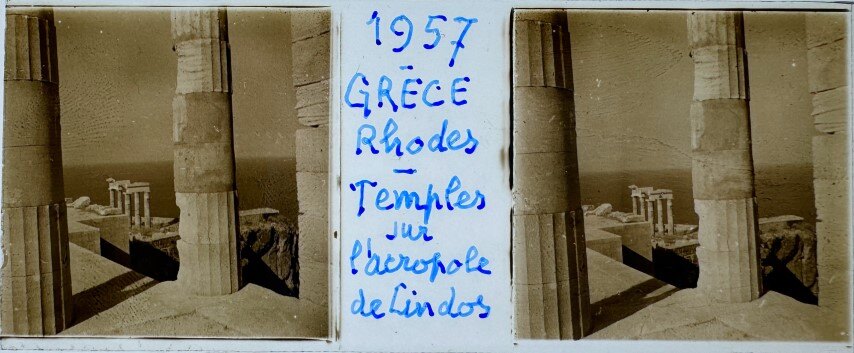 1957
-
GRÈCE
Rhodes
-
Temples
sur
l'acropole
de Lindos